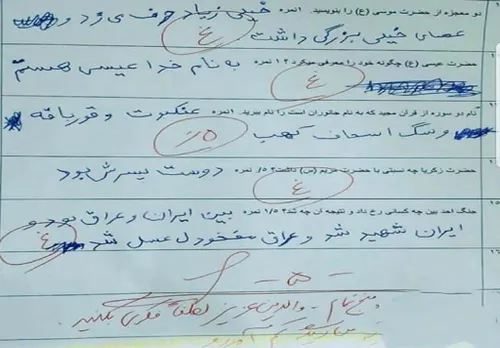 دو معجزه از حضرت موسی (ع) را بنویسید. ۱نمره خیلی زیاد حرف می‌زد و
عصای خیلی بزرگی داشت غ
حضرت عیسی (ع) چگونه خود را معرفی میکرد ؟ ۱ نمره به نام خدا عیسی هستم
غ
نام دو سوره از قران مجید که به نام جانوران است را نام ببرید. ۱نمره عنکبوت و قورباقه
و سگ اسحاب کهب ۵/.
حضرت زکریا چه نسبتی با حضرت مریم (س) داشت؟ ۵/. نمره دوست پسرش بود
غ
جنگ احد بین چه کسانی رخ داد و نتیجه آن چه شد؟ ۱/۵ نمره بین ایران و عراق بود و
ایران شهید شد و عراق مفخود ل عسل شد غ
والدین عزیز لطفا فکری بکنید.